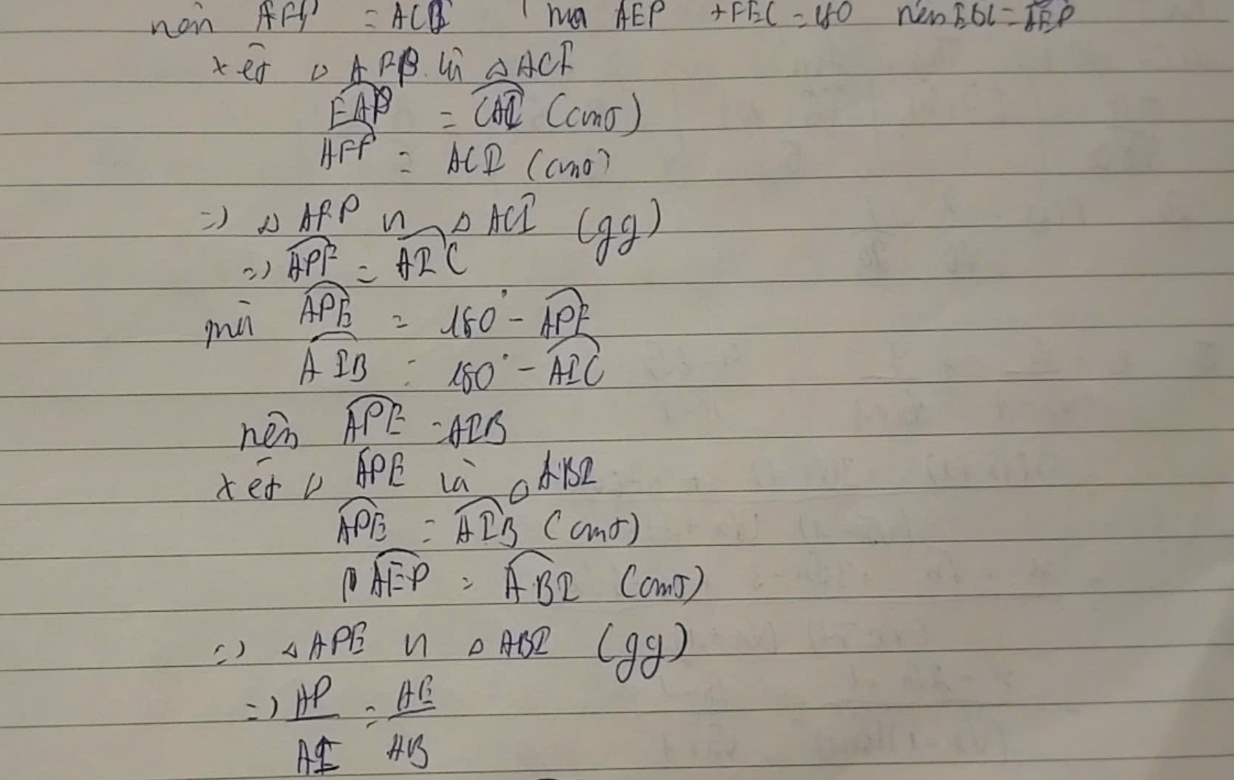 nên AFP = ACI mà AEP + FEC = 180 nên
xét △ AFP và △ ACI
FAP = CAI (cmt)
AFP = ACI (cmt)
=> △ AFP ∽ △ ACI (gg)
=> APF = AIC
mà APE = 180° - APF
AIB = 180° - AIC
nên APE = AIB
xét △ APE và △ ABI
APE = AIB (cmt)
AEP = ABI (cmt)
=> △ APE ∽ △ ABI (gg)
=> AP/AI = AE/AB